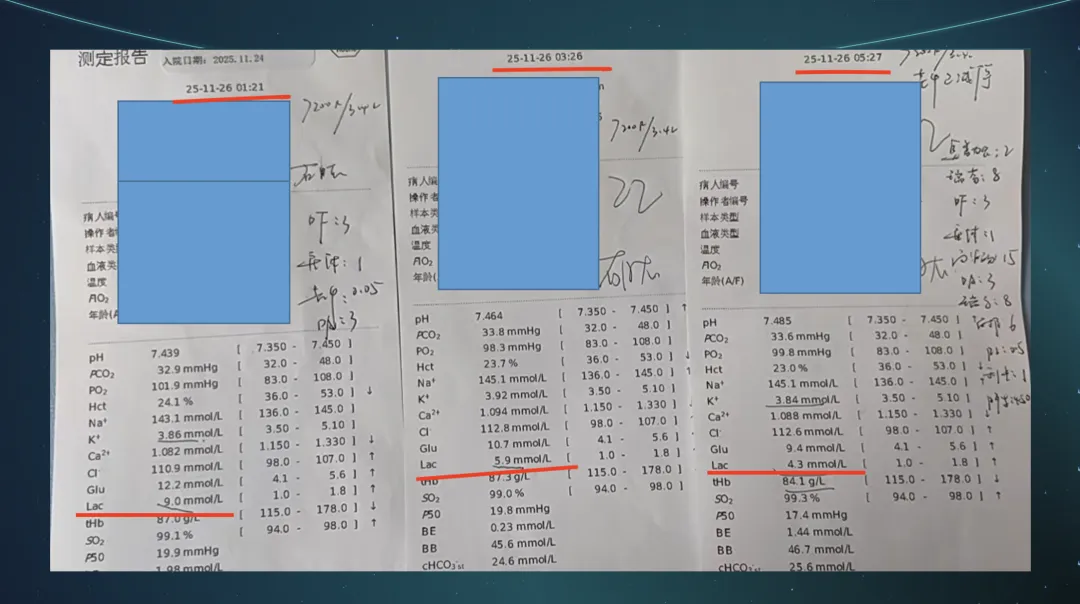 测定报告
入院日期: 2025.11.24
25-11-26 01:21
7200r/3.4L
呼:3
去甲:0.05
病人编号
操作者
样本类
血液类
温度
FIO₂
年龄(A
pH 7.439 [ 7.350 - 7.450 ]
PCO₂ 32.9 mmHg [ 32.0 - 48.0 ]
PO₂ 101.9 mmHg [ 83.0 - 108.0 ]
Hct 24.1 % [ 36.0 - 53.0 ] ↓
Na⁺ 143.1 mmol/L [ 136.0 - 145.0 ]
K⁺ 3.86 mmol/L [ 3.50 - 5.10 ]
Ca²⁺ 1.082 mmol/L [ 1.150 - 1.330 ] ↓
Cl⁻ 110.9 mmol/L [ 98.0 - 107.0 ] ↑
Glu 12.2 mmol/L [ 4.1 - 5.6 ] ↑
Lac 9.0 mmol/L [ 1.0 - 1.8 ] ↑
tHb 87.0 g/L [ 115.0 - 178.0 ] ↓
SO₂ 99.1 % [ 94.0 - 98.0 ] ↑
P50 19.9 mmHg
1.98 mmol/L
25-11-26 03:26
7200r/3.4L
病人编
操作者
样本类
血液类
温度
FIO₂
年龄(
pH 7.464 [ 7.350 - 7.450 ] ↑
PCO₂ 33.8 mmHg [ 32.0 - 48.0 ]
PO₂ 98.3 mmHg [ 83.0 - 108.0 ]
Hct 23.7 % [ 36.0 - 53.0 ] ↓
Na⁺ 145.1 mmol/L [ 136.0 - 145.0 ] ↑
K⁺ 3.92 mmol/L [ 3.50 - 5.10 ]
Ca²⁺ 1.094 mmol/L [ 1.150 - 1.330 ]
Cl⁻ 112.8 mmol/L [ 98.0 - 107.0 ]
Glu 10.7 mmol/L [ 4.1 - 5.6 ]
Lac 5.9 mmol/L [ 1.0 - 1.8 ]
tHb 87.3 g/L [ 115.0 - 178.0 ]
SO₂ 99.0 % [ 94.0 - 98.0 ]
P50 19.8 mmHg
BE 0.23 mmol/L
BB 45.6 mmol/L
cHCO₃⁻st 24.6 mmol/L
25-11-26 05:27
呼:3
病人编号
操作者编号
样本类型
血液类型
温度
FIO₂
年龄(A/F)
pH 7.485 [ 7.350 - 7.450 ]
PCO₂ 33.6 mmHg [ 32.0 - 48.0 ]
PO₂ 99.8 mmHg [ 83.0 - 108.0 ]
Hct 23.0 % [ 36.0 - 53.0 ] ↓
Na⁺ 145.1 mmol/L [ 136.0 - 145.0 ]
K⁺ 3.84 mmol/L [ 3.50 - 5.10 ]
Ca²⁺ 1.088 mmol/L [ 1.150 - 1.330 ] ↓
Cl⁻ 112.6 mmol/L [ 98.0 - 107.0 ] ↑
Glu 9.4 mmol/L [ 4.1 - 5.6 ] ↑
Lac 4.3 mmol/L [ 1.0 - 1.8 ] ↑
tHb 84.1 g/L [ 115.0 - 178.0 ] ↓
SO₂ 99.3 % [ 94.0 - 98.0 ] ↑
P50 17.4 mmHg
BE 1.44 mmol/L
BB 46.7 mmol/L
cHCO₃⁻st 25.6 mmol/L